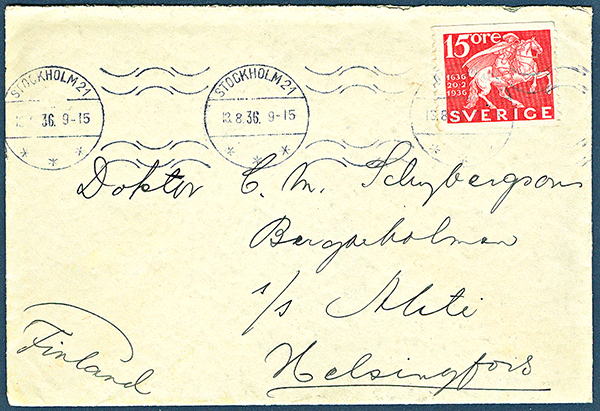 STOCKHOLM 21
13.8.36. 9-15
STOCKHOLM 21
13.8.36. 9-15
15 ÖRE
1636
20·2
1936
SVERIGE
Doktor C. M. Schybergson
s/s Ahti
Helsingfors
Finland